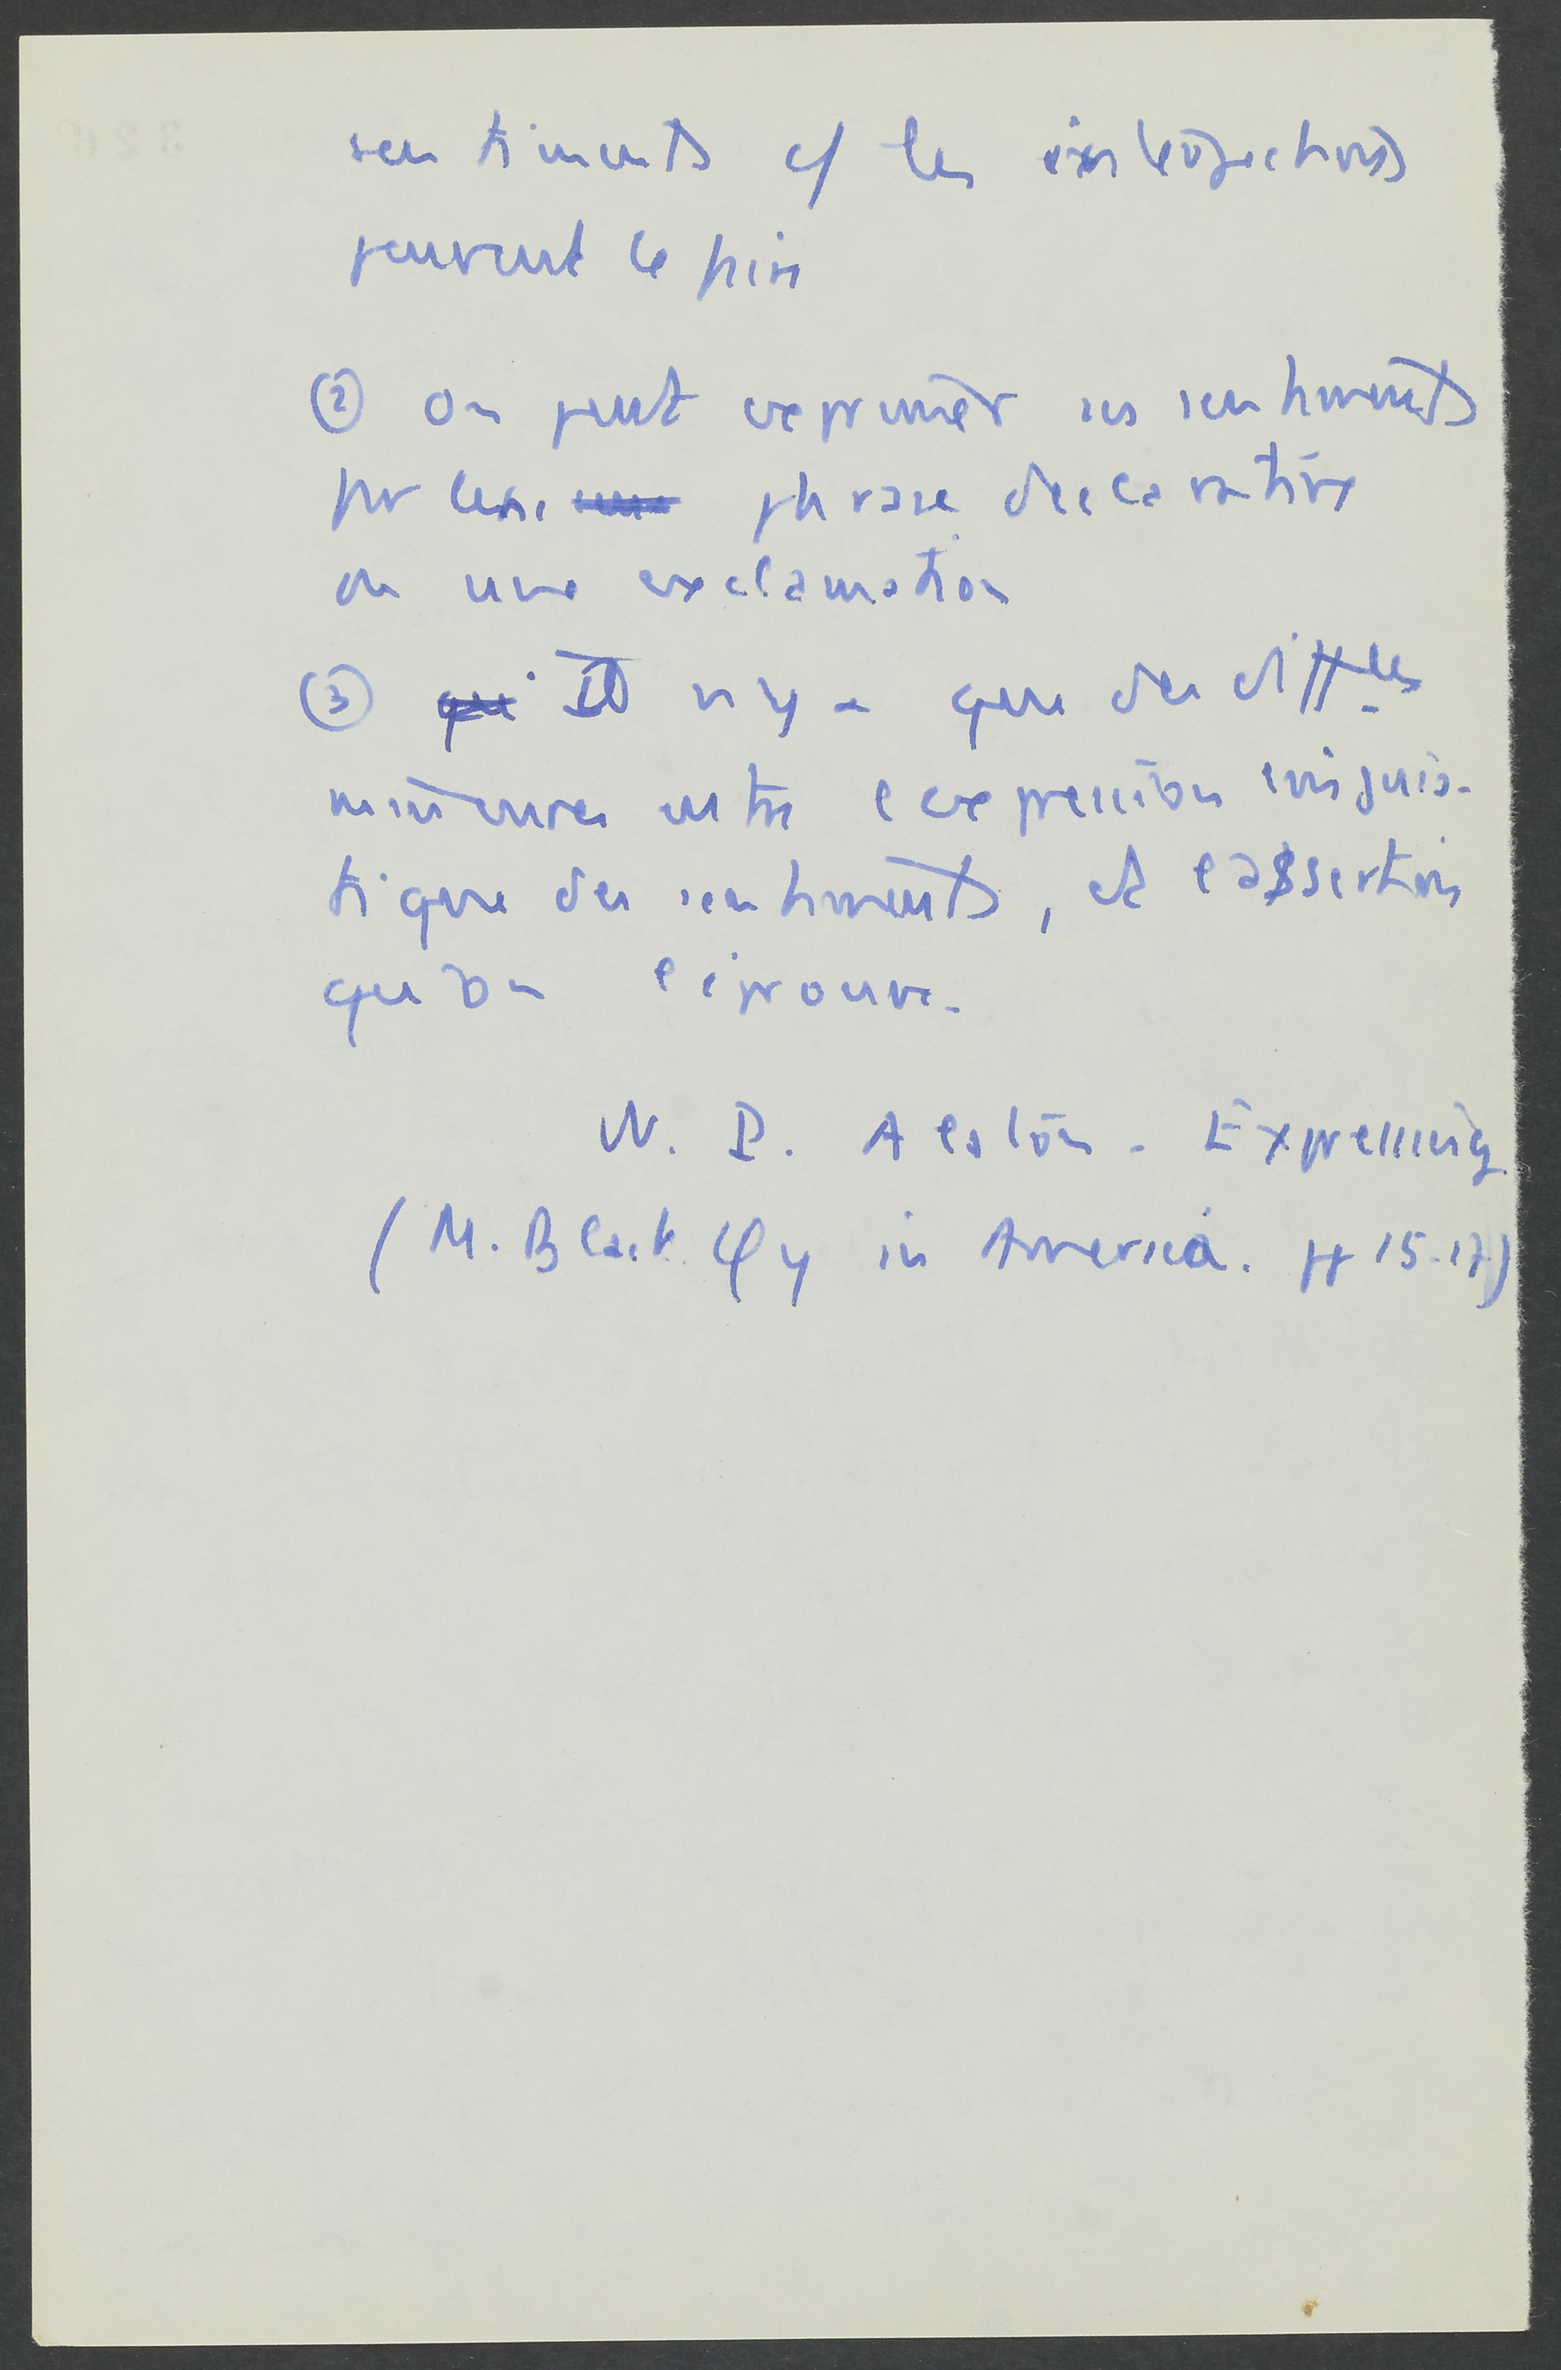 sentiments c/ les interjections
peuvent le faire
② on peut exprimer ses sentiments
par une phrase déclarative
ou une exclamation
③ Il n'y a que des diff^ces
mineures entre l'expression linguis-
tique des sentiments, et l'assertion
qu'on l'éprouve.
W. P. Alston - Expressing
(M. Black φy in America. pp 15-17)